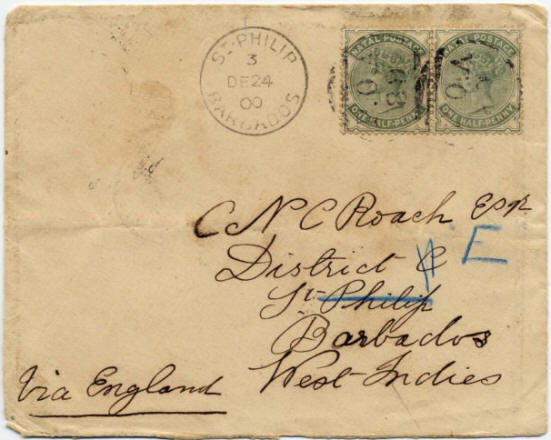 ST. PHILIP
3
DE 24
00
BARBADOS
NATAL POSTAGE
ONE HALF-PENNY
NATAL POSTAGE
ONE HALF-PENNY
C N C Roach Esqr
District C
E
St Philip
Barbados
West Indies
Via England